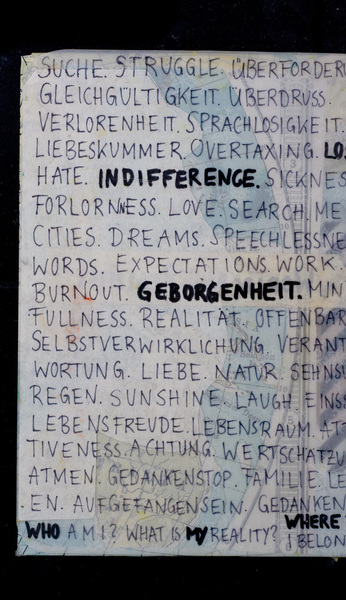 SUCHE. STRUGGLE. ÜBERFORDERU
GLEICHGÜLTIGKEIT. ÜBERDRUSS.
VERLORENHEIT. SPRACHLOSIGKEIT.
LIEBESKUMMER. OVERTAXING. LO
HATE. INDIFFERENCE. SICKNES
FORLORNNESS. LOVE. SEARCH. ME
CITIES. DREAMS. SPEECHLESSNE
WORDS. EXPECTATIONS. WORK.
BURNOUT. GEBORGENHEIT. MIN
FULLNESS. REALITÄT. OFFENBAR
SELBSTVERWIRKLICHUNG. VERANT
WORTUNG. LIEBE. NATUR. SEHNSU
REGEN. SUNSHINE. LAUGH. EINS
LEBENSFREUDE. LEBENSRAUM. AT
TIVENESS. ACHTUNG. WERTSCHÄTZU
ATMEN. GEDANKENSTOP. FAMILIE. LE
EN. AUFGEFANGENSEIN. GEDANKEN
WHO AM I? WHAT IS MY REALITY? WHERE
I BELON